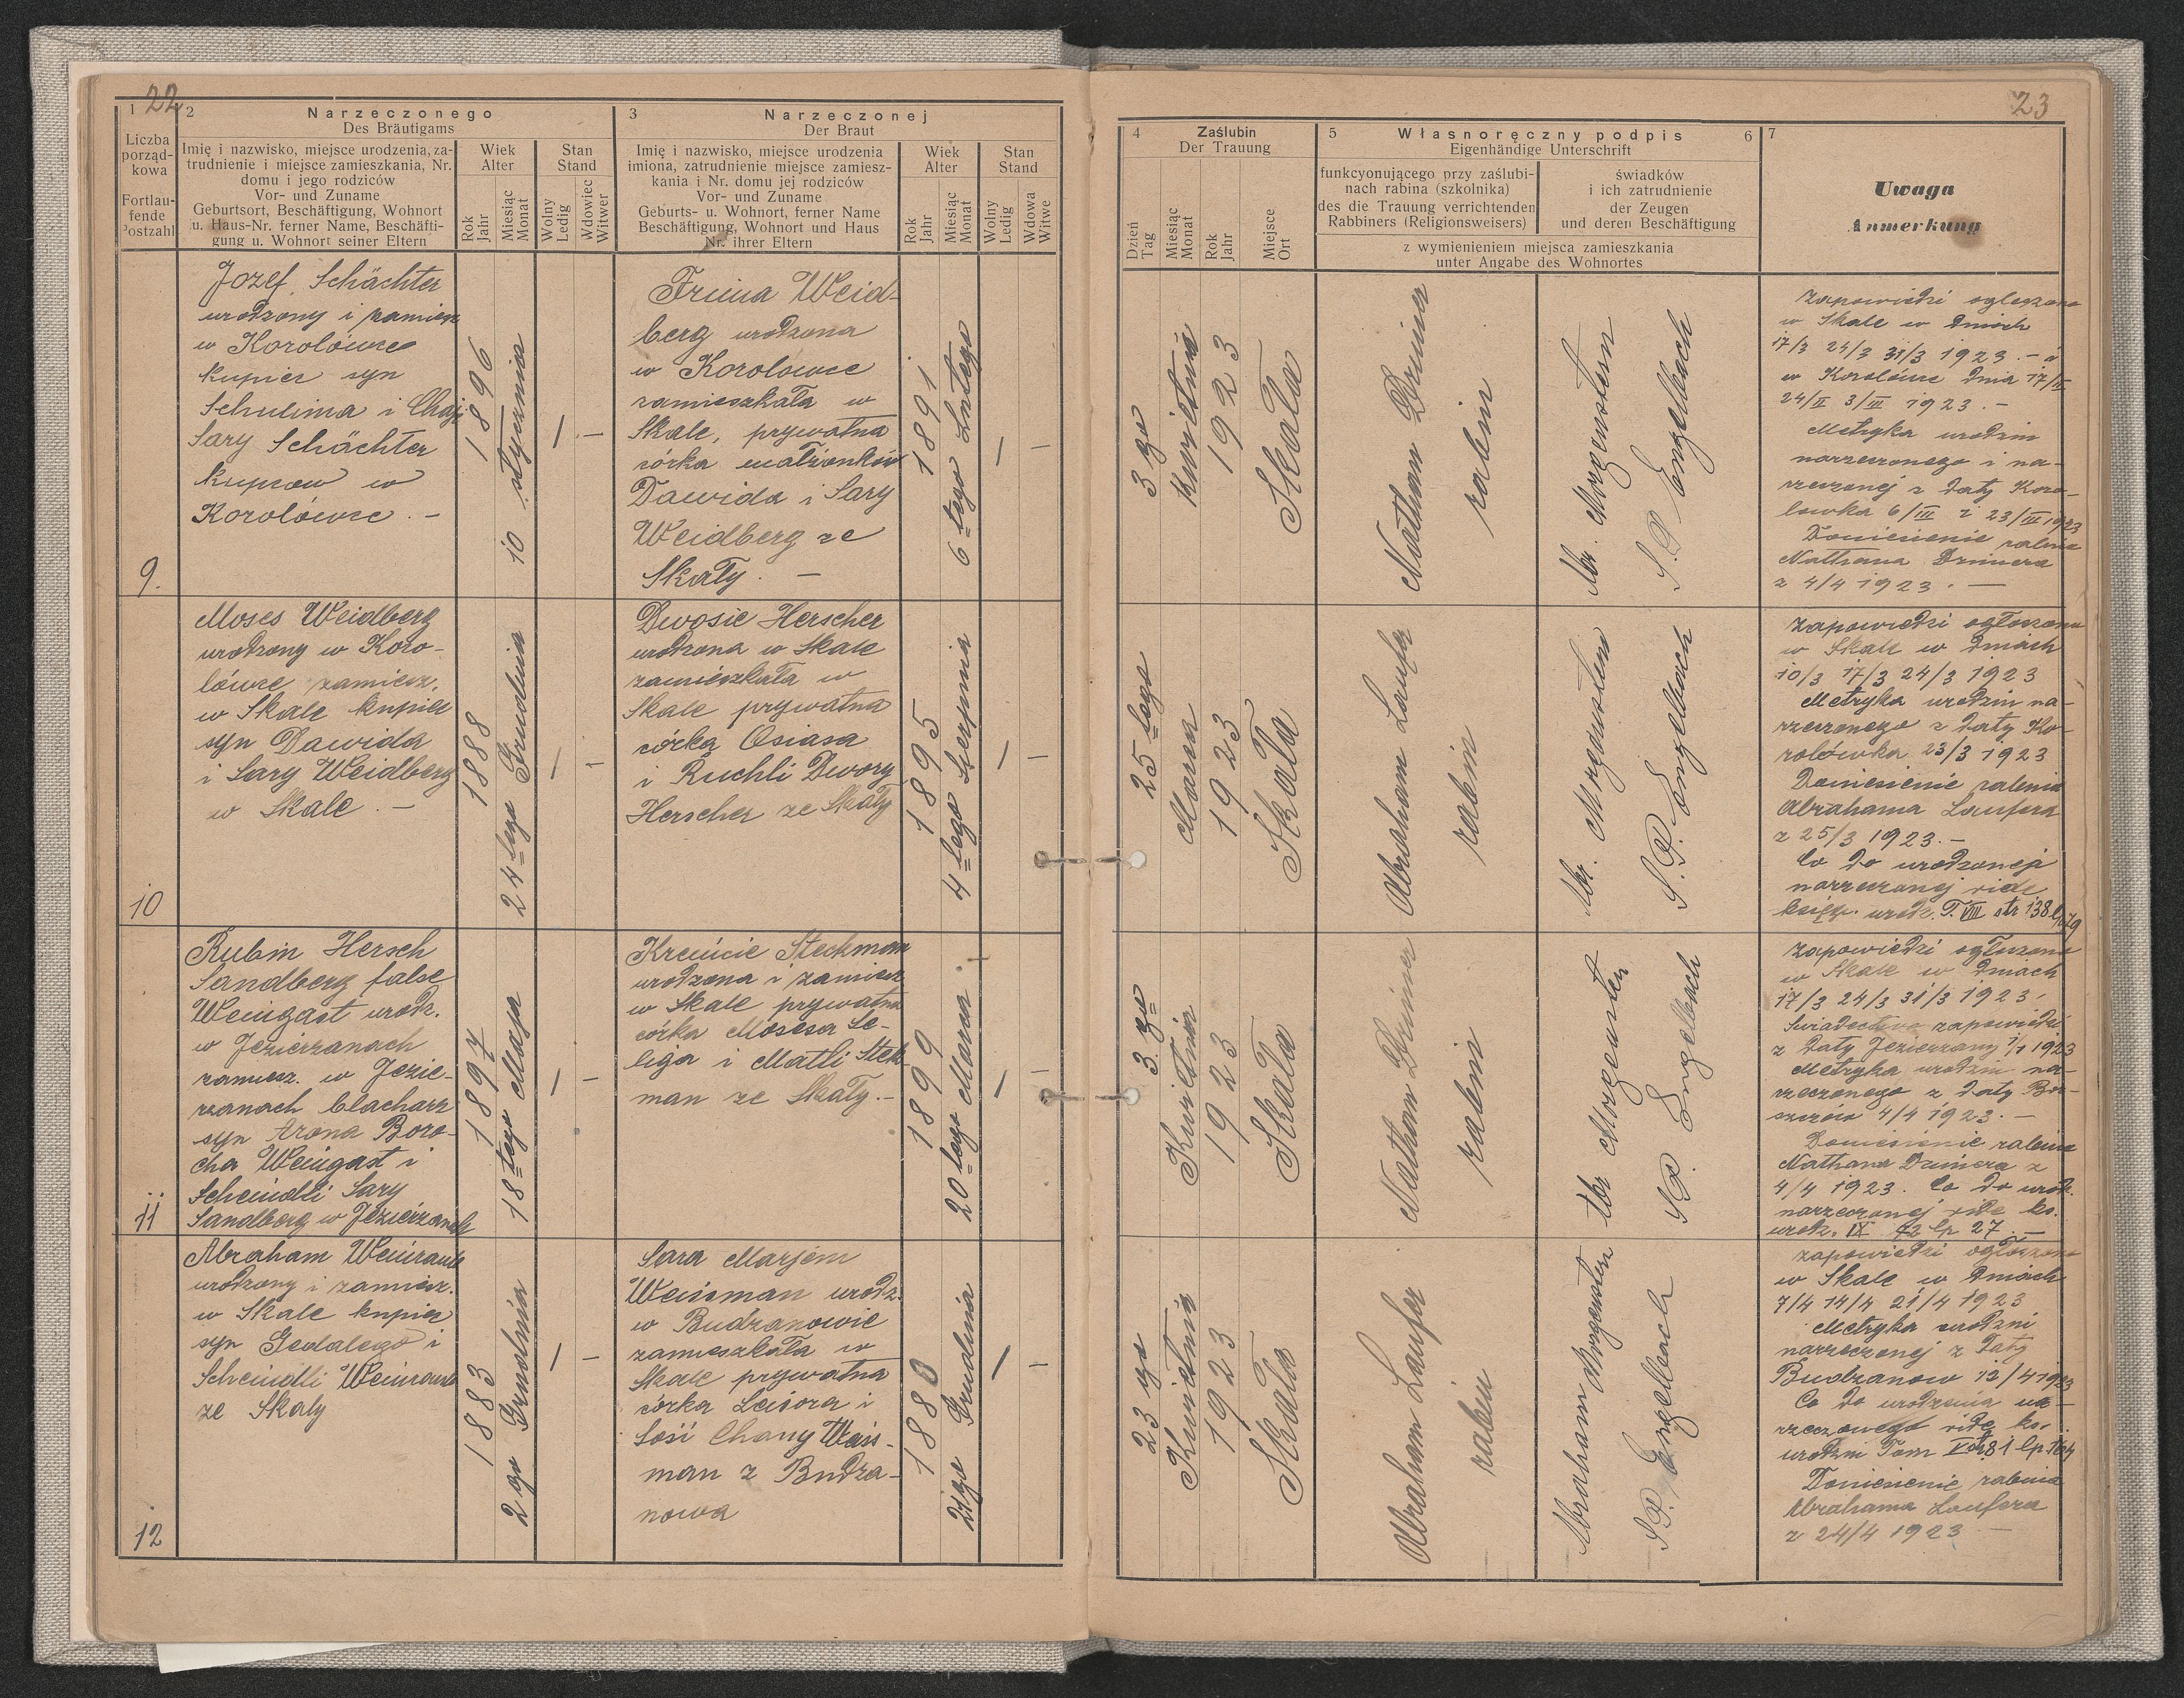 22
1
Liczba
porząd-
kowa
Fortlau-
fende
Postzahl
2
Narzeczonego
Des Bräutigams
Imię i nazwisko, miejsce urodzenia, za-
trudnienie i miejsce zamieszkania, Nr.
domu i jego rodziców
Vor- und Zuname
Geburtsort, Beschäftigung, Wohnort
u. Haus-Nr. ferner Name, Beschäfti-
gung u. Wohnort seiner Eltern
Wiek
Alter
Rok
Jahr
Miesiąc
Monat
Stan
Stand
Wolny
Ledig
Wdowiec
Witwer
3
Narzeczonej
Der Braut
Imię i nazwisko, miejsce urodzenia
imiona, zatrudnienie miejsce zamiesz-
kania i Nr. domu jej rodziców
Vor- und Zuname
Geburts- u. Wohnort, ferner Name
Beschäftigung, Wohnort und Haus
Nr. ihrer Eltern
Wiek
Alter
Rok
Jahr
Miesiąc
Monat
Stan
Stand
Wolny
Ledig
Wdowa
Witwe
9.
Jozef Schächter
urodzony i zamiesz
w Korolówce
kupiec syn
Schulima i Chaj
Sary Schächter
kupców w
Korolówce. –
1896
10 stycznia
/
–
Fruma Weid-
berg urodzona
w Korolowce
zamieszkała w
Skale, prywatna
córka małżonków
Dawida i Sary
Weidberg ze
Skały. –
1891
6-tego Lutego
/
–
10
Moses Weidberg
urodzony w Koro-
lówce zamiesz.
w Skale kupiec
syn Dawida
i Sary Weidberg
w Skale. –
1888
24-tego Grudnia
/
–
Dwosie Herscher
urodzona w Skale
zamieszkała w
Skale prywatna
córka Osiasa
i Ruchli Dwory
Herscher ze Skały
1895
4-tego Sierpnia
/
–
11
Rubin Hersch
Sandberg false
Weingast urodz.
w Jezierzanach
zamiesz. w Jezie-
rzanach blacharz
syn Arona Boro-
cha Weingast i
Scheindli Sary
Sandberg w Jezierzanach
1897
18-tego Maja
/
–
Kreincie Steckman
urodzona i zamiesz
w Skale prywatna
córka Mosesa Se-
liga i Matli Stek-
man ze Skały. –
1899
20-tego Marca
/
–
12
Abraham Weinraub
urodzony i zamiesz.
w Skale kupiec
syn Gedalego i
Scheindli Weinraub
ze Skały
1883
2 go Grudnia
/
–
Sara Marjem
Weissman urodz.
w Budzanowie
zamieszkała w
Skale prywatna
córka Leisora i
Sosi Chany Weiss-
man z Budza-
nowa
1880
21go Grudnia
/
–
23
4
Zaślubin
Der Trauung
Dzień
Tag
Miesiąc
Monat
Rok
Jahr
Miejsce
Ort
5
Własnoręczny podpis
6
Eigenhändige Unterschrift
funkcyonującego przy zaślubi-
nach rabina (szkolnika)
des die Trauung verrichtenden
Rabbiners (Religionsweisers)
świadków
i ich zatrudnienie
der Zeugen
und deren Beschäftigung
z wymienieniem miejsca zamieszkania
unter Angabe des Wohnortes
7
Uwaga
Anmerkung
3 go
Kwietnia
1923
Skała
Nathan Drimer
rabin
Abr. Morgenstern
S. P. Engelbach
Zapowiedzi ogłoszone
w Skale w dniach
17/3 24/3 31/3 1923. – i
w Korolówce dnia 17/II
24/II 3/III 1923. –
Metryka urodzin
narzeczonego i na-
rzeczonej z daty Koro-
lowka 6/III i 23/III 1923
Doniesienie rabina
Nathana Drimera
z 4/4 1923. –
25-tego
Marca
1923
Skała
Abraham Laufer
rabin
Abr. Morgenstern
S. P. Engelbach
Zapowiedzi ogłoszone
w Skale w dniach
10/3 17/3 24/3 1923
Metryka urodzin na-
rzeczonego z daty Ko-
rolówka 23/3 1923
Doniesienie rabina
Abrahama Laufera
z 25/3 1923. –
Co do urodzenia
narzeczonej vide
księgę. urodz. T. VIII str 138 lp 79
3 go
Kwietnia
1923
Skała
Nathan Drimer
rabin
Abr Morgenstern
S P. Engelbach
Zapowiedzi ogłoszone
w Skale w dniach
17/3 24/3 31/3 1923.
Świadectwo zapowiedzi
z daty Jezierzany 1923
Metryka urodzin na-
rzeczonego z daty Bor-
szczów 4/4 1923. –
Doniesienie rabina
Nathana Drimera z
4/4 1923. Co do urodz.
narzeczonej vide ks.
urodz. IX 72 lp 27. –
23 go
Kwietnia
1923
Skała
Abraham Laufer
rabin
Abraham Morgenstern
S P. Engelbach
Zapowiedzi ogłoszone
w Skale w dniach
7/4 14/4 21/4 1923
Metryka urodzin
narzeczonej z daty
Budzanow 12/4 1923
Co do urodzenia na-
rzeczonego vide ks.
urodzin Tom V
Doniesienie rabina
Abrahama Laufera
z 24/4 1923 –